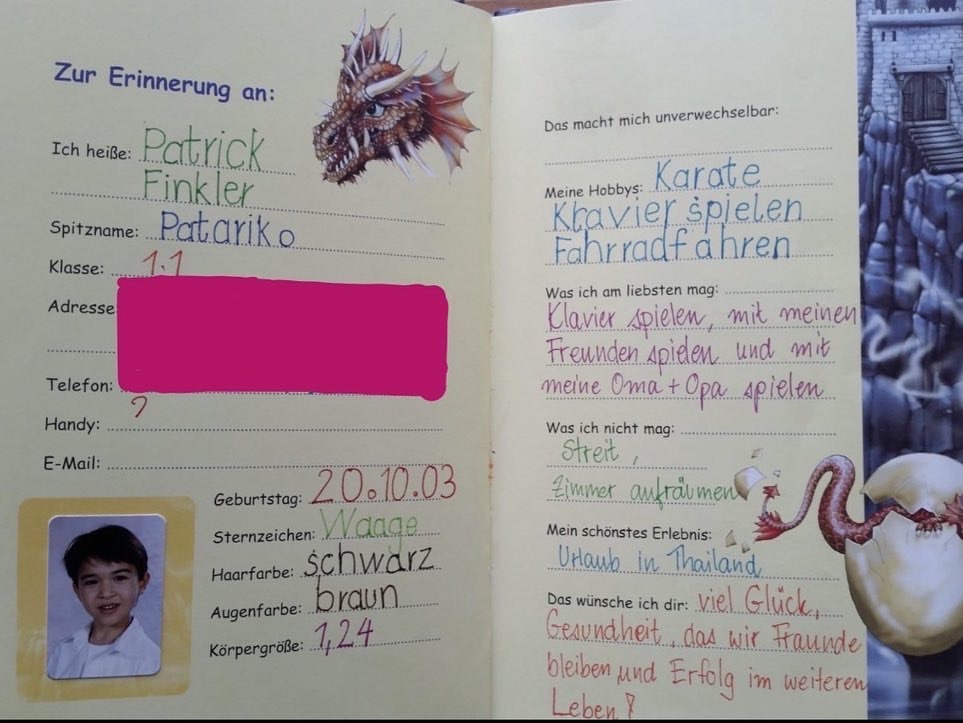 Zur Erinnerung an:
Ich heiße: Patrick
Finkler
Spitzname: Patariko
Klasse: 1.1
Adresse
Telefon:
?
Handy:
E-Mail:
Geburtstag: 20.10.03
Sternzeichen: Waage
Haarfarbe: schwarz
Augenfarbe: braun
Körpergröße: 1,24
Das macht mich unverwechselbar:
Meine Hobbys: Karate
Klavier spielen
Fahrradfahren
Was ich am liebsten mag:
Klavier spielen, mit meinen
Freunden spielen und mit
meine Oma + Opa spielen
Was ich nicht mag:
Streit,
Zimmer aufräumen
Mein schönstes Erlebnis:
Urlaub in Thailand
Das wünsche ich dir: viel Glück,
Gesundheit, das wir Fraunde
bleiben und Erfolg im weiteren
Leben!